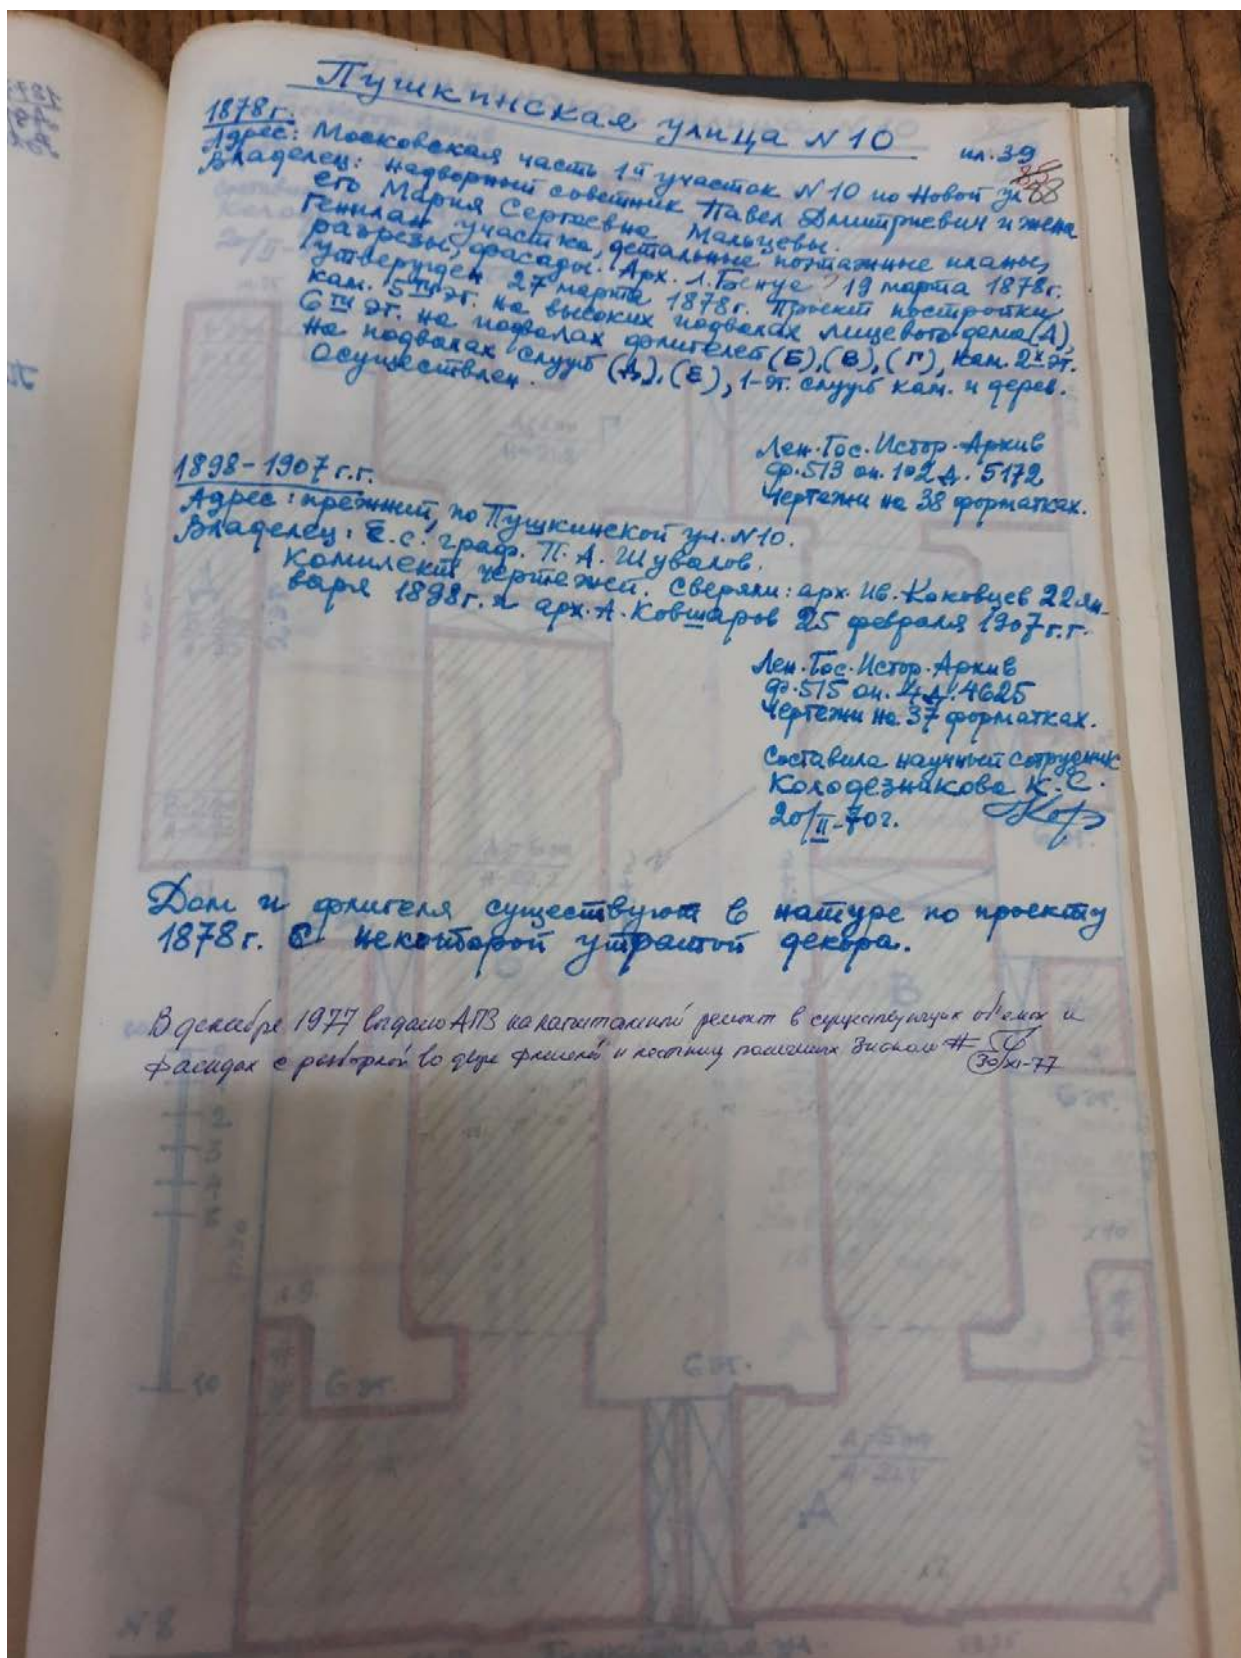 Пушкинская улица N10
пл. 39
38
1878 г.
Адрес: Московская часть 1й участок N10 по Новой ул.
Владелец: надворный советник Павел Дмитриевич и жена
его Мария Сергеевна Мальцевы.
Генплан участка, детальные поэтажные планы,
разрезы, фасады. Арх. Л. Бенуа 19 марта 1878 г.
утвержден 27 марта 1878 г. Проект постройки
кам. 5ти эт. на высоких подвалах лицевого дома (А),
6ти эт. на подвалах флигелей (Б), (В), (Г), кам. 2х эт.
на подвалах служб (Д), (Е), 1-эт. служб кам. и дерев.
Осуществлен.
Лен. Гос. Истор. Архив
ф. 513 оп. 102 д. 5172
Чертежи на 38 форматках.
1898-1907 г.г.
Адрес: прежний, по Пушкинской ул. N10.
Владелец: Е. С. граф. П. А. Шувалов.
Комплект чертежей. Сверяли: арх. Ив. Коковцев 22 ян-
варя 1898 г. и арх. А. Ковшаров 25 февраля 1907 г.г.
Лен. Гос. Истор. Архив
ф. 515 оп. 4 д. 4625
Чертежи на 37 форматках.
Составила научный сотрудник
Колодезникова К. С.
20/II-70 г.
Дом и флигеля существуют в натуре по проекту
1878 г. с некоторой утратой декора.
В декабре 1977 выдано АПЗ на капитальный ремонт в существующих объемах и
фасадах с разборкой во дворе флигелей и лестниц помеченных знаком #
30/XI-77